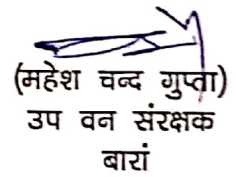 (महेश चन्द गुप्ता)
उप वन संरक्षक
बारां